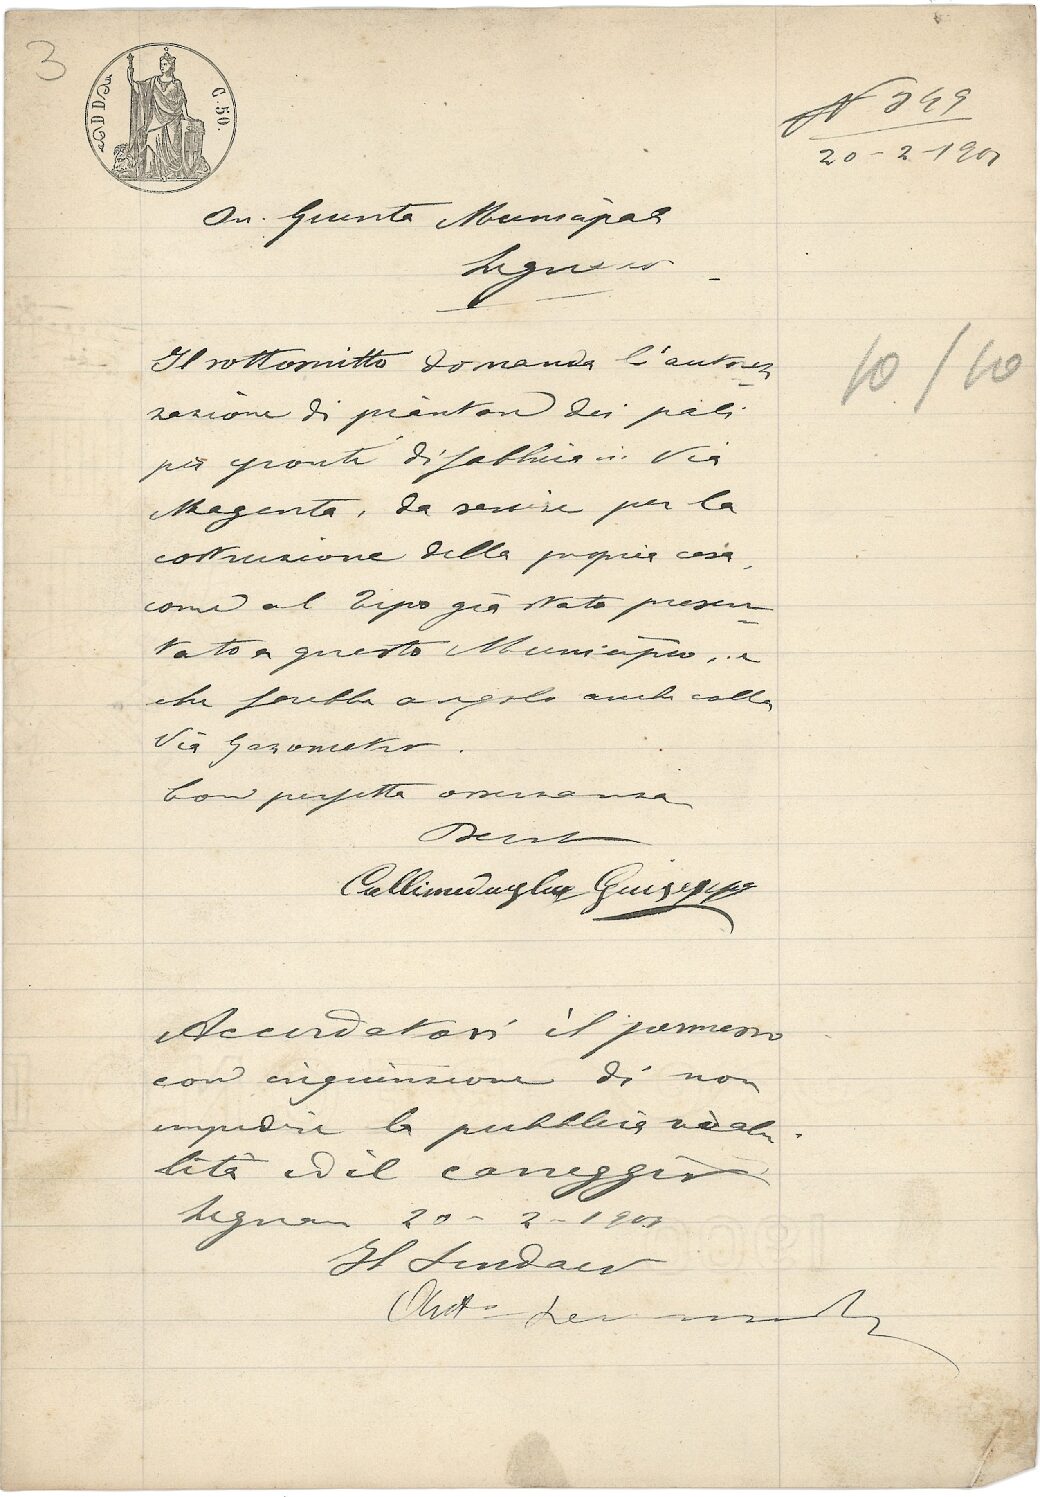 3
C. 50.
N 349
20-2-1901
On. Giunta Municipale
Legnano
10/10
Il sottoscritto domanda l'autoriz=
zazione di piantare dei pali
per ponti di fabbrica in Via
Magenta, da servire per la
costruzione della propria casa,
come al tipo già stato presen=
tato a questo Municipio, e
che farebbe angolo anche colla
Via Gasometro.
Con perfetta osservanza
Devot
Gallimedaglia Giuseppe
Accordatosi il permesso
con ingiunzione di non
impedire la pubblica viabi-
lità ed il carreggio
Legnano 20-2-1901
Il Sindaco